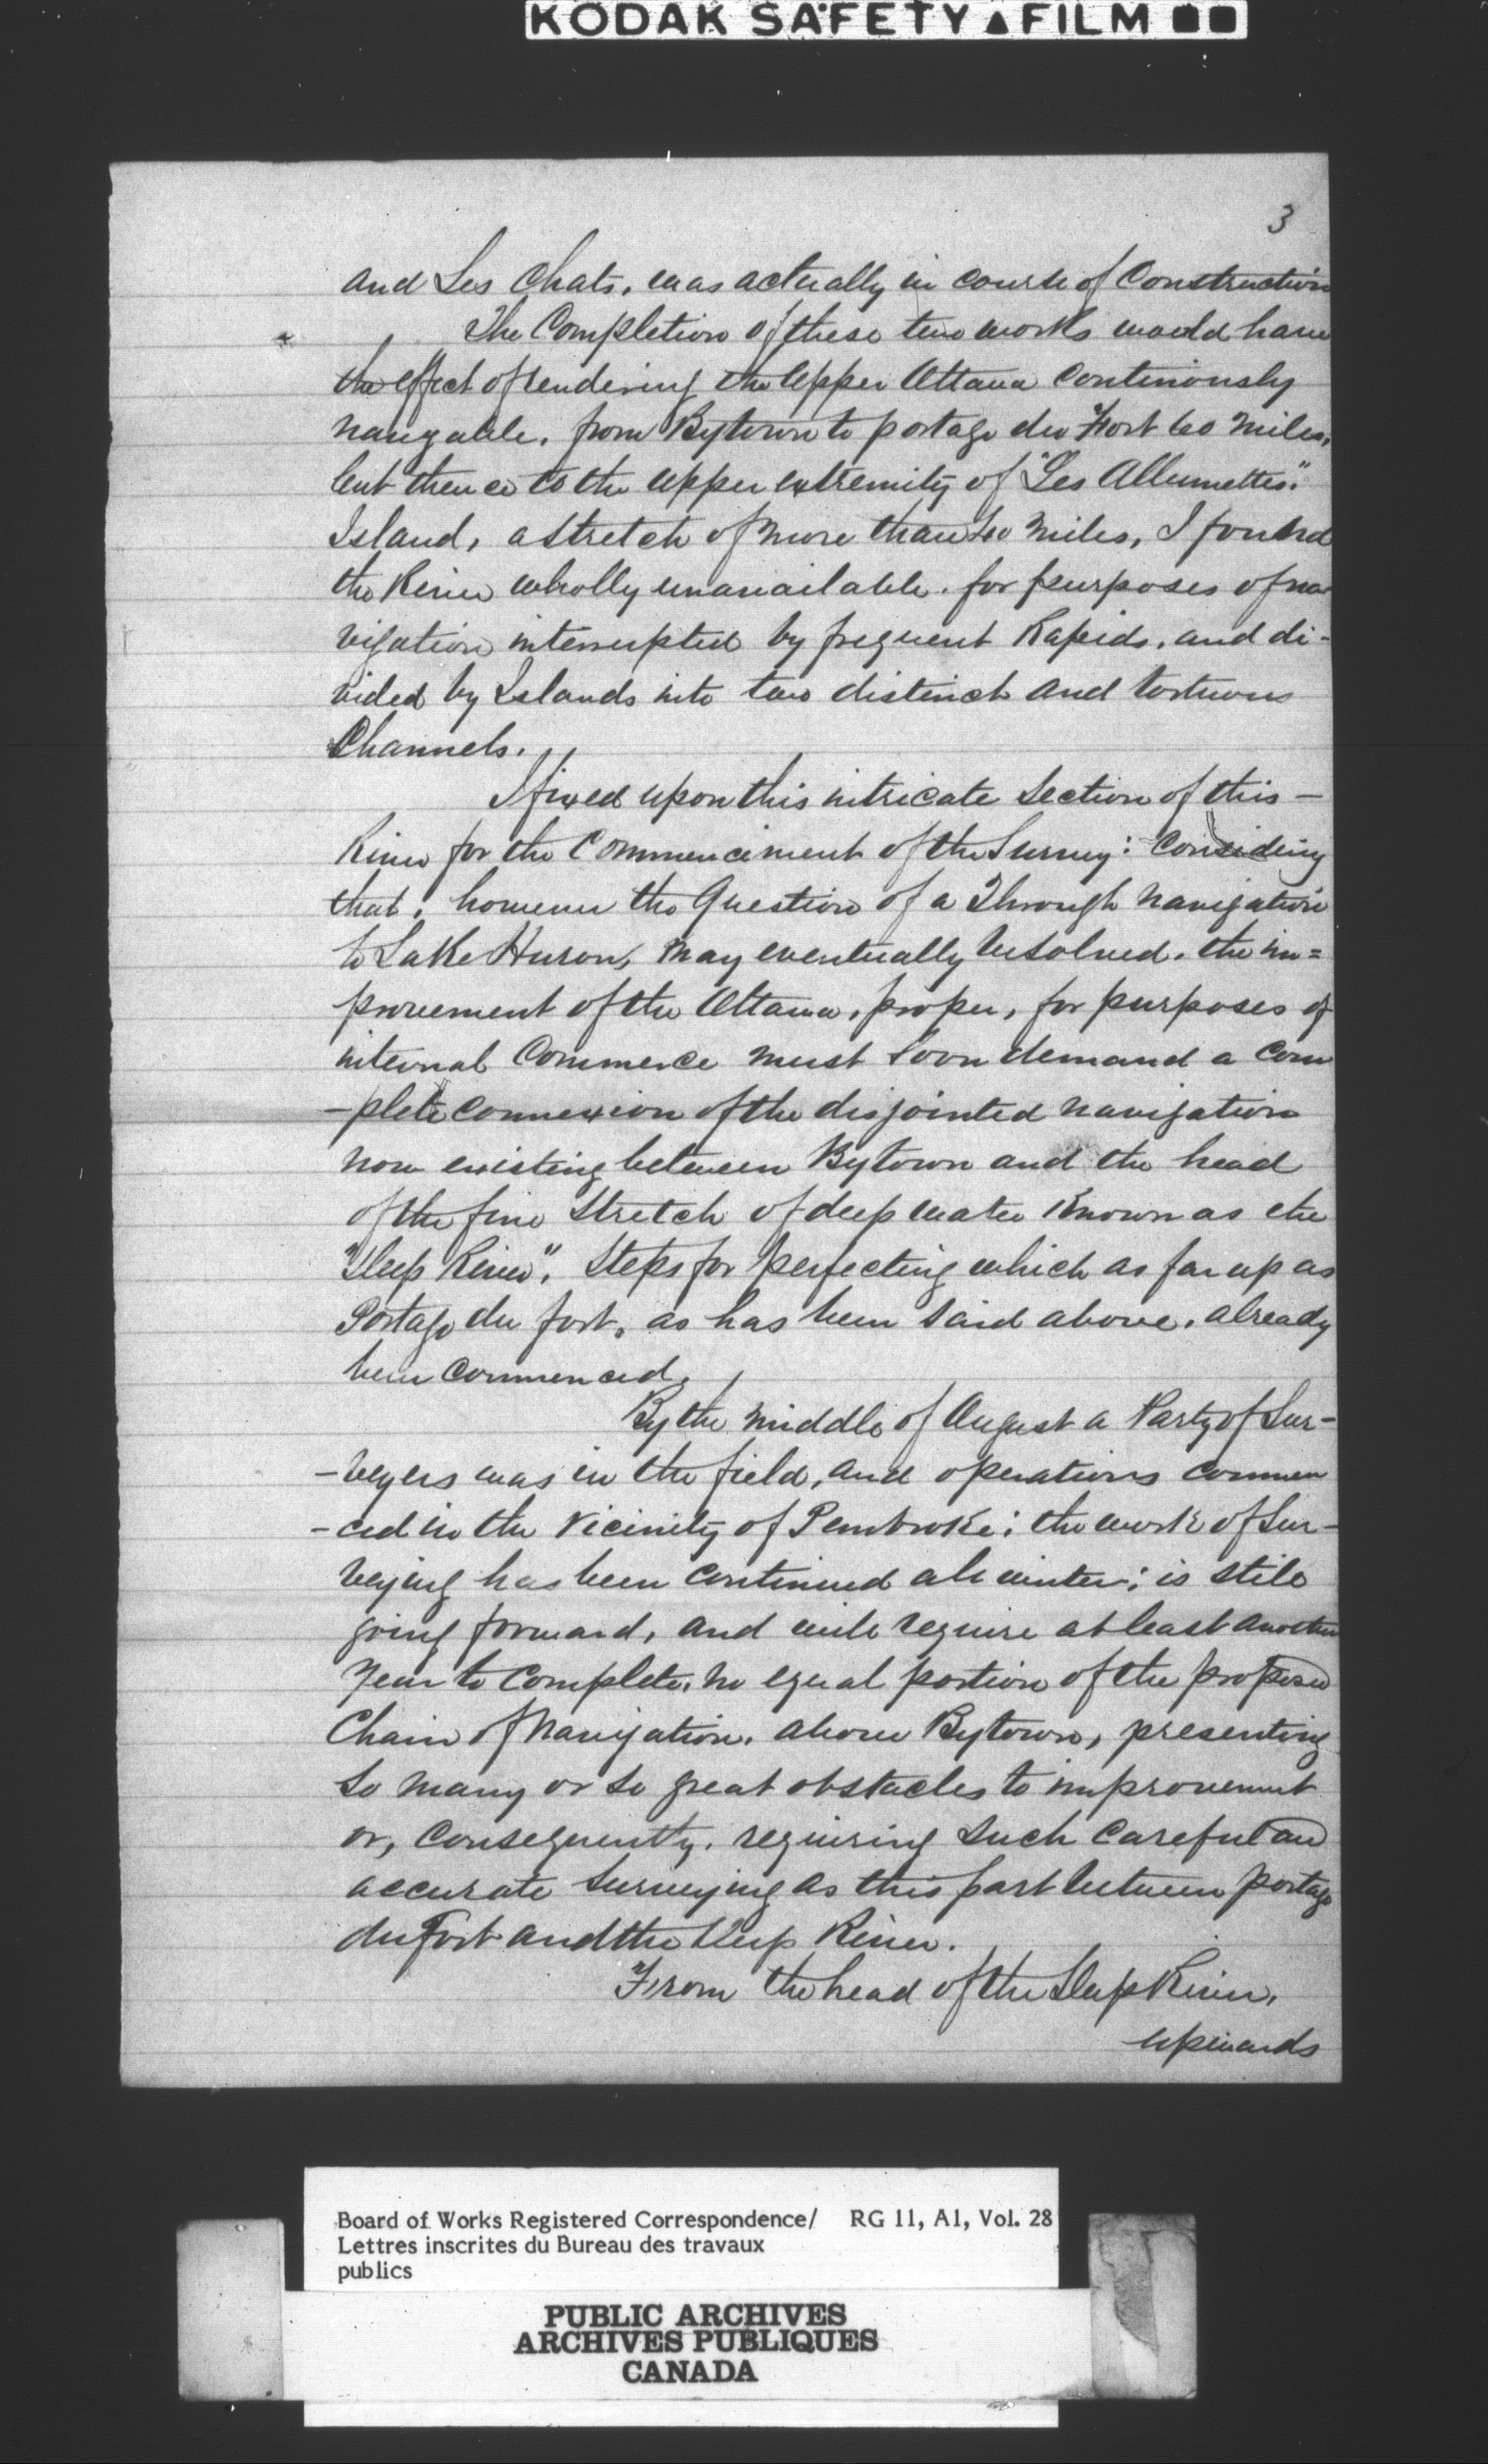 KODAK SAFETY ▲ FILM ■■
3
and Les Chats, was actually in course of Construction
The Completion of these two works would have
the effect of rendering the Upper Ottawa Continously
navigable, from Bytown to portage du Fort 60 miles,
but thence to the upper extremity of "Les Allumettes."
Island, a stretch of more than 40 miles, I found
the River wholly unavailable. for purposes of na-
vigation interrupted by frequent Rapids, and di-
vided by Islands into two distinct and tortuous
Channels.
I fixed upon this intricate Section of this —
River for the Commencement of the Survey: Considering
that; however the Question of a Through navigation
to Lake Huron, may eventually be solved. the im=
provement of the Ottawa, proper, for purposes of
internal Commerce must soon demand a com
-plete connexion of the disjointed navigation
now existing between Bytown and the head
of the fine Stretch of deep water Known as the
"Deep River", Steps for perfecting which as far up as
Portage du fort, as has been said above, already
been commenced.
By the middle of August a Party of Sur-
-veyers was in the field, and operations commen
-ced in the Vicinity of Pembroke; the work of Sur-
veying has been continued all winter; is still
going forward, and will require at least another
Year to Complete. no equal portion of the proposed
Chain of Navigation, above Bytown, presenting
so many or so great obstacles to improvement
or, Consequently, requiring such careful and
accurate Surveying as this part between portage
du Fort and the Deep River.
From the head of the Deep River,
upwards
Board of Works Registered Correspondence/ RG 11, A1, Vol. 28
Lettres inscrites du Bureau des travaux
publics
PUBLIC ARCHIVES
ARCHIVES PUBLIQUES
CANADA